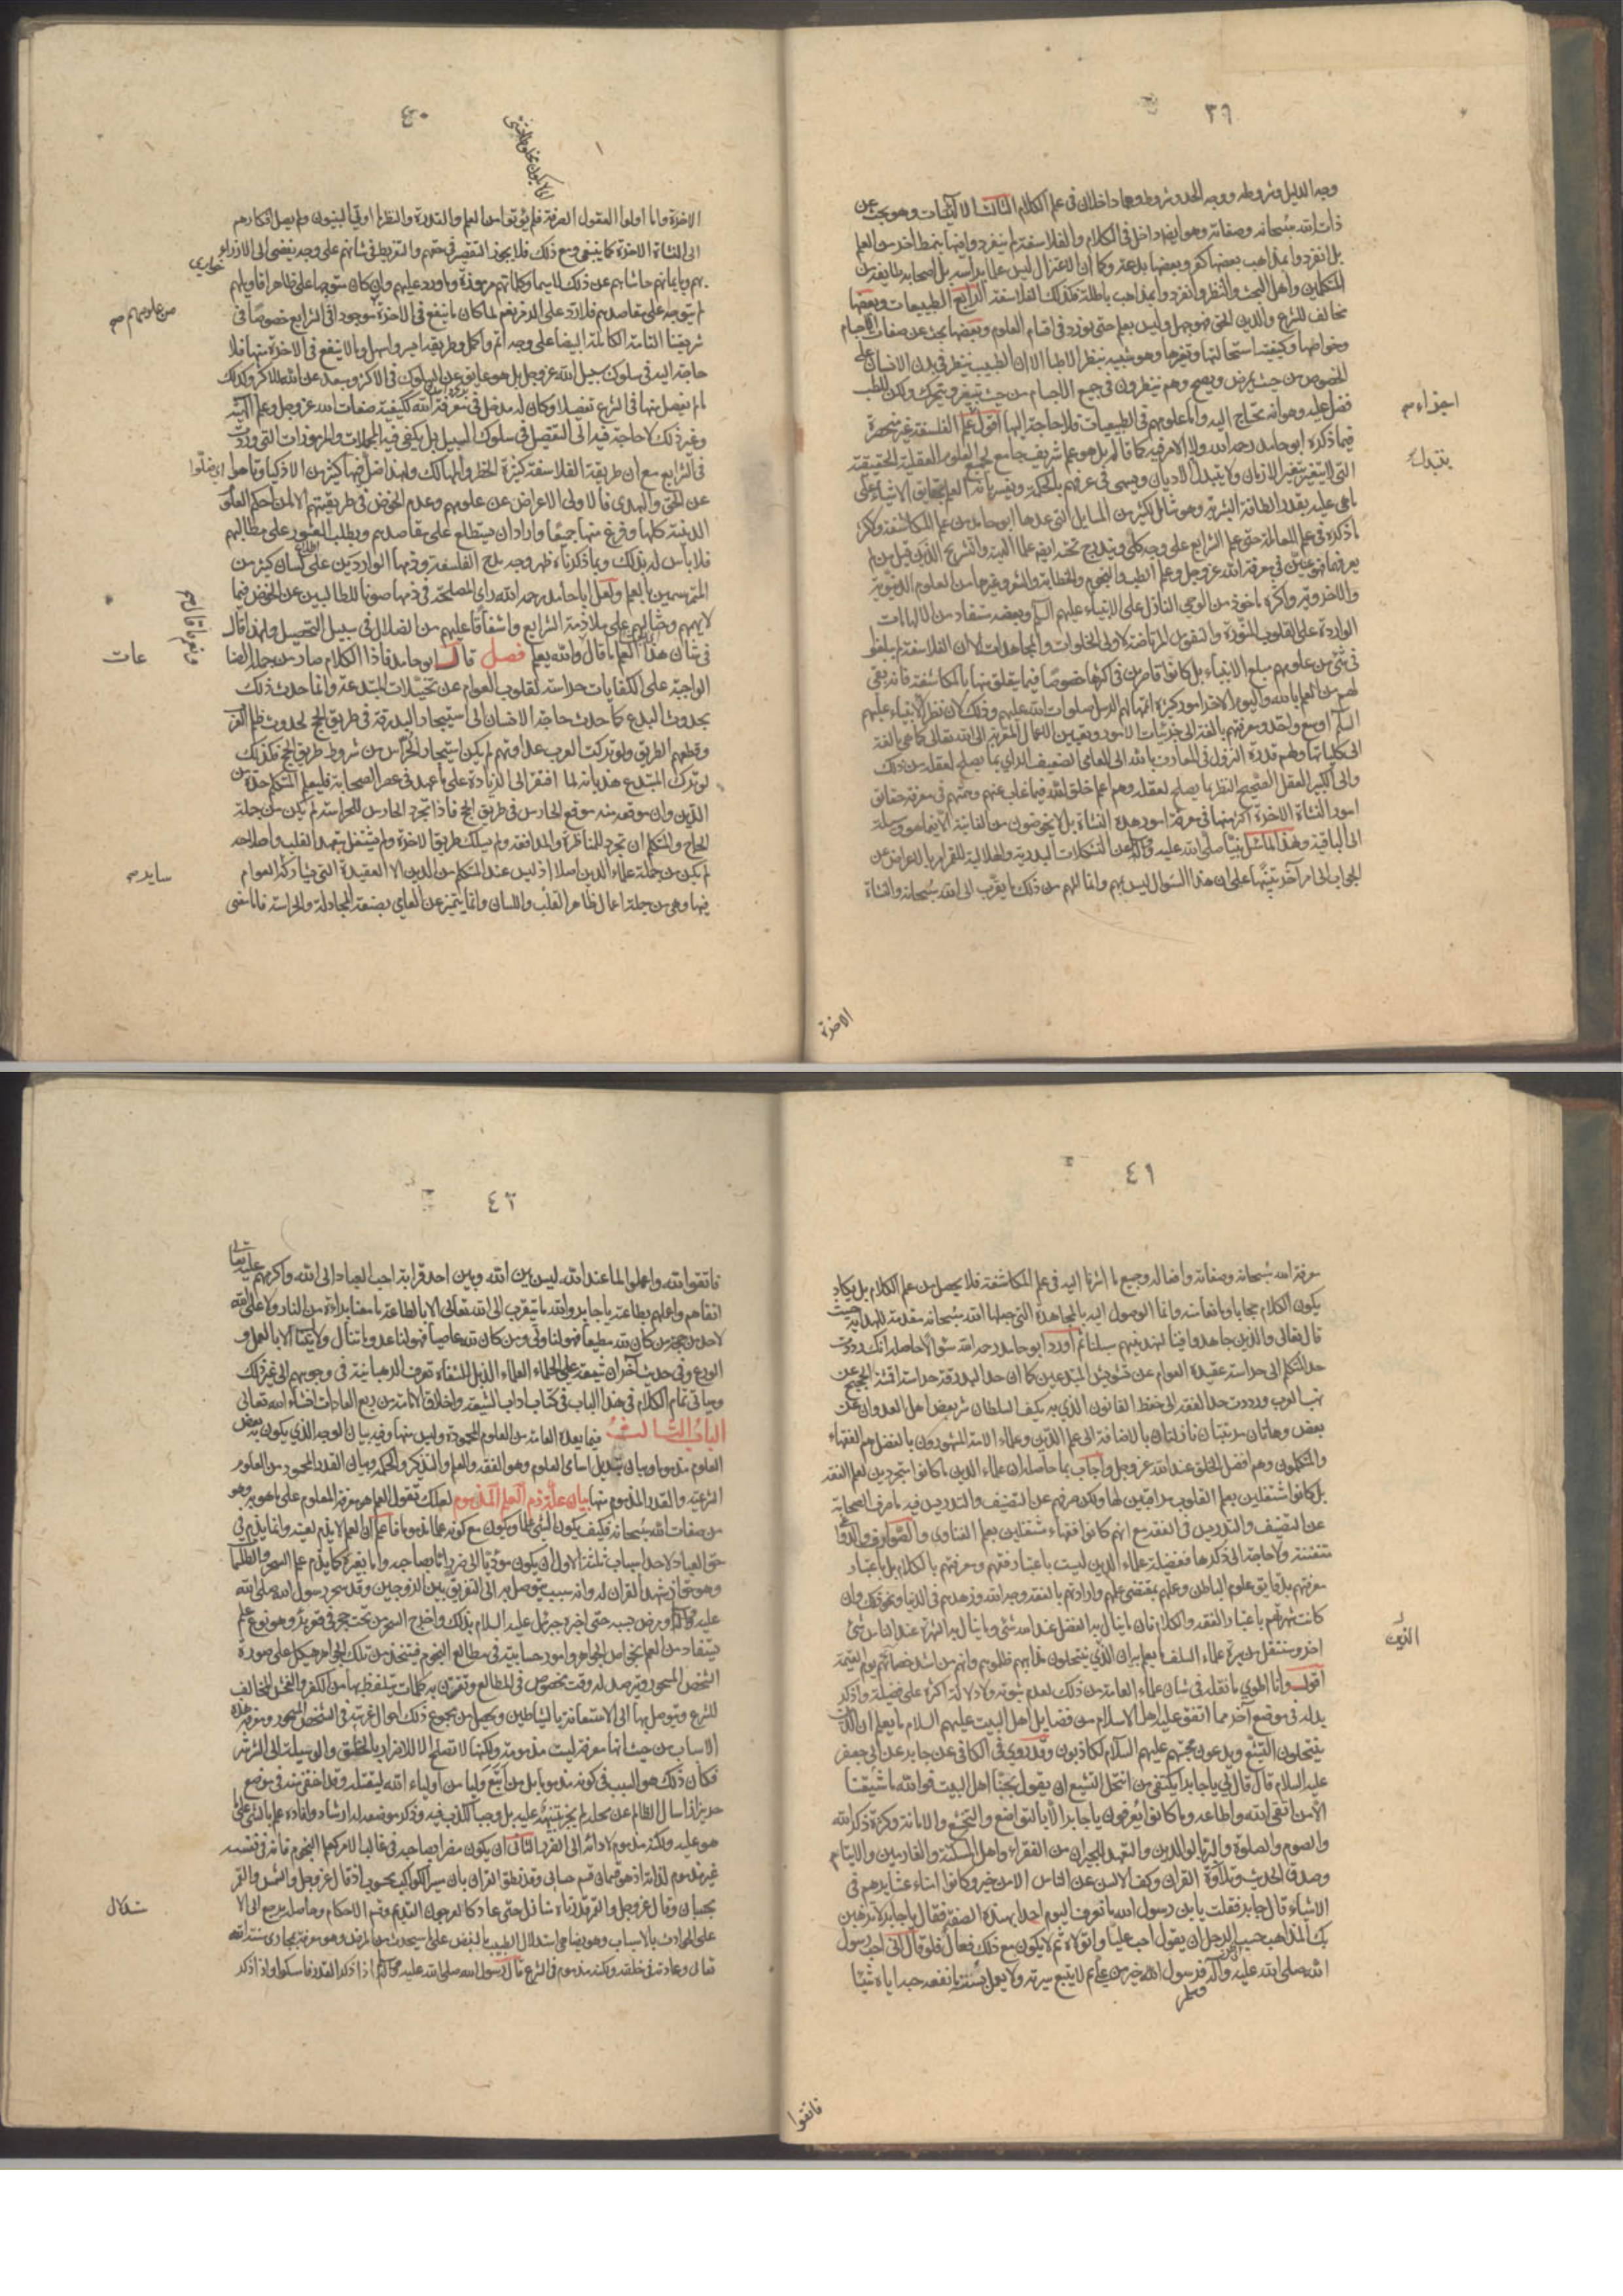 ٣٩
وجه الدليل وشروطه ووجه الحد وشروطه وهما داخلان في علم الكلام الثالث الالهيات وهو بحث عن
ذات الله سبحانه وصفاته وهو ايضا داخل في الكلام والفلاسفة لم ينفردوا فيها بنمط اخر من العلم
بل انفردوا بمذاهب بعضها كفر وبعضها بدعة وكما ان الاعتزال ليس علما برأسه بل اصحابه طايفة من
المتكلمين واهل البحث والنظر وانفردوا بمذاهب باطلة فكذلك الفلاسفة الرابع الطبيعيات وبعضها
مخالف للشرع والدين الحق فهو جهل وليس بعلم حتى يورد في اقسام العلوم وبعضها بحث عن صفات الاجسام
وخواصها وكيفية استحالتها وتغيرها وهو شبيه بنظر الاطبا الا ان الطبيب ينظر في بدن الانسان على
الخصوص من حيث يمرض ويصح وهم ينظرون في جميع الاجسام من حيث يتغير ويتحرك ولكن للطب
فضل عليه وهو انه يحتاج اليه واما علومهم في الطبيعيات فلا حاجة اليها اقول علم الفلسفة غير منحصرة
اجزاء
فيما ذكره ابو حامد رحمه الله ولا الامر فيه كما قاله بل هو علم شريف جامع لجميع العلوم العقلية الحقيقية
التي لا يتغير بتغير الازمان ولا يتبدل الاديان ويسمى في عرفهم بالحكمة ويفسر بانه العلم بحقايق الاشياء على
بتبدل
ما هي عليه بقدر الطاقة البشرية وهو شامل لكثير من المسايل التي عدها ابو حامد من علم المكاشفة ولاكثر
ما ذكره في علم المعاملة حتى علم الشرايع على وجه كلي ويندرج تحته ايضا علما الهيئة والتشريح الذين قيل من لم
يعرفهما فهو عنين في معرفة الله عز وجل وعلم الطب والنجوم والخطابة والشعر وغيرها من العلوم الدنيوية
والاخروية واكثره ماخوذ من الوحي النازل على الانبياء عليهم السلام وبعضه مستفاد من الالهامات
الواردة على القلوب المنورة والنفوس المرتاضة لاولي الخلوات والمجاهدات الا ان الفلاسفة لم يبلغوا
في شئ من علومهم مبلغ الانبياء بل كانوا قاصرين في اكثرها خصوصا فيما يتعلق منها بالمكاشفة فانه بقي
لهم من العلم بالله واليوم الاخر امور كثيرة اتمها لهم الرسل صلوات الله عليهم وذلك لان نظر الانبياء عليهم
السلام اوسع واحد ومعرفتهم بالغة الى جزئيات الامور وتعيين الاعمال المقربة الى الله تعالى كما هي بالغة
الى كلياتها ولهم قدرة النزول في المعارف بالله الى العامي الضعيف الراي بما يصلح لعقله من ذلك
والى الكبير العقل الصحيح النظر بما يصلح لعقله وهم اعلم خلق الله فيما غاب عنهم وهمتهم في معرفة حقايق
امور النشاة الاخرة اكثر منها في معرفة امور هذه النشاة بل لا يخوضون من الفانية الا فيما هو وسيلة
الى الباقية ولهذا لما سئل نبينا صلى الله عليه وآله عن التشكلات البدرية والهلالية للقمر امر بالاعراض عن
الجواب الى امر آخر تنبيها على ان هذا السؤال ليس بمهم وانما المهم من ذلك ما يقرب الى الله سبحانه والنشاة
الاخرة
٤٠
الاخرة واما اولوا العقول الصرفة فلم يؤتوا من العلم والقدرة والنظر ما اوتي النبيون ولم يصل افكارهم
الى النشاة الاخرة كما ينبغي ومع ذلك فلا يجوز التقصير في حقهم والتفريط في شانهم على وجه يفضي الى الازراء
بهم وبايمانهم حاشاهم عن ذلك لا سيما وكلماتهم مرموزة وما ورد عليهم وان كان متوجها على ظاهر اقاويلهم
لم يتوجه على مقاصدهم فلا رد على الرمز نعم لما كان ما ينفع في الاخرة موجودا في الشرايع خصوصا في
من علومهم صح
شريعتنا التامة الكاملة البيضا على وجه اتم واكمل وطريقة امر واسهل وما لا ينفع في الاخرة منها فلا
حاجة اليه في سلوك سبيل الله عز وجل بل هو عايق عن السلوك في الاكثر ومبعد عن الله للاكثر وكذلك
ما لم يفصل منها في الشرع تفصيلا وكان له مدخل في معرفة الله ككيفية صفات الله عز وجل وعلم الهيئة
وغير ذلك لا حاجة فيه الى التفصيل في سلوك السبيل بل يكفي فيه المجملات والمرموزات التي وردت
في الشرايع مع ان طريقة الفلاسفة كثيرة الخطر والمهالك ولهذا ضل فيها كثير من الاذكيا وتاهوا
عن الحق والهدى فالاولى الاعراض عن علومهم وعدم الخوض في طريقتهم الا لمن احكم العلوم
الدينية كلها وفرغ منها جميعا واراد ان يستطلع على مقاصدهم ويطلب العثور على مطالبهم
فلا باس له بذلك وبما ذكرناه ظهر وجه مدح الفلسفة وذمها الواردين على لسان كثير من
المتوسمين بالعلم ولعل ابا حامد رحمه الله راى المصلحة في ذمها صونا للطالبين عن الخوض فيما
لا يهمهم وحثا لهم على ملازمة الشرايع واشفاقا عليهم من الضلال في سبيل التحصيل ولهذا قال
في شان هذا العلم ما قال والله يعلم فصل قال ابو حامد فاذا الكلام صار من جملة الصنا
عات
الواجبة على الكفايات حراسة لقلوب العوام عن تخيلات المبتدعة وانما حدث ذلك
بحدوث البدع كما حدث حاجة الانسان الى استيجار البدرقة في طريق الحج لحدوث ظلم العرب
وقطعهم الطريق ولو تركت العرب عداوتهم لم يكن استيجار الحراس من شروط طريق الحج فكذلك
لو ترك المبتدع هذيانه لما افتقر الى الزيادة على ما عهد في عصر الصحابة فليعلم المتكلم حده من
الدين وان موقعه منه موقع الحارس في طريق الحج فاذا تجرد الحارس للحراسة لم يكن من جملة
الحاج والمتكلم ان تجرد للمناظرة والمدافعة ولم يسلك طريق الاخرة ولم يشتغل بتعهد القلب واصلاحه
لم يكن من جملة علماء الدين اصلا اذ ليس عند المتكلم من الدين الا العقيدة التي يشاركه العوام
ساير
فيها وهي من جملة اعمال ظاهر القلب واللسان وانما يتميز عن العامي بصنعة المجادلة والحراسة فاما معنى
٤١
معرفة الله سبحانه وصفاته وافعاله وجميع ما اشرنا اليه في علم المكاشفة فلا يحصل من علم الكلام بل يكاد
يكون الكلام حجابا ومانعا منه وانما الوصول اليه بالمجاهدة التي جعلها الله سبحانه مقدمة للهداية حيث
قال تعالى والذين جاهدوا فينا لنهدينهم سبلنا ثم اورد ابو حامد رحمه الله سؤالا حاصله انك رددت
حد المتكلم الى حراسة عقيدة العوام عن تشويش المبتدعين كما ان حد البدرقة حراسة اقمشة الحجيج عن
نهب العرب ورددت حد الفقه الى حفظ القانون الذي به يكف السلطان شر بعض اهل العدوان عن
بعض وهاتان مرتبتان نازلتان بالاضافة الى علم الدين وعلماء الامة المشهورون بالفضل هم الفقهاء
والمتكلمون وهم افضل الخلق عند الله عز وجل واجاب بما حاصله ان علماء الدين ما كانوا متجردين لعلم الفقه
بل كانوا مشتغلين بعلم القلوب مراقبين لها ولكن صرفهم عن التصنيف والتدريس فيه ما صرف الصحابة
عن التصنيف والتدريس في الفقه مع انهم كانوا فقهاء مشتغلين بعلم الفتاوي والصوارف والدواعي
متيقنة ولا حاجة الى ذكرها ففضيلة علماء الدين ليست باعتبار فقههم ومعرفتهم بالكلام بل باعتبار
معرفتهم بدقايق علوم الباطن وعملهم بمقتضى علمهم وارادتهم بالفقه وجه الله وزهدهم في الدنيا ونحو ذلك وان
كانت شهرتهم باعتبار الفقه والكلام فان ما ينال به الفضل عند الله شئ وما ينال به الشهرة عند الناس شئ
آخر وسننقل من سيرة علماء السلف ما يعلم به ان الذين ينتحلون مذاهبهم ظلموهم وانهم من اشد خصمائهم يوم القيمة
الذين
اقول وانا اطوي ما نقله في شان علماء العامة من ذلك لعدم ثبوته ولا دلالة اكثره على فضيلة واذكر
بدله في موضع آخر مما اتفق عليه اهل الاسلام من فضايل اهل البيت عليهم السلام ما يعلم ان الذين
ينتحلون التشيع ويدعون محبتهم عليهم السلام لكاذبون وقد روي في الكافي عن جابر عن ابي جعفر
عليه السلام قال قال لي يا جابر ايكتفي من انتحل التشيع ان يقول بحبنا اهل البيت فوالله ما شيعتنا
الا من اتقى الله واطاعه وما كانوا يعرفون يا جابر الا بالتواضع والتخشع والامانة وكثرة ذكر الله
والصوم والصلوة والبر بالوالدين والتعهد للجيران من الفقراء واهل المسكنة والغارمين والايتام
وصدق الحديث وتلاوة القران وكف الالسن عن الناس الا من خير وكانوا امناء عشايرهم في
الاشياء قال جابر فقلت يا بن رسول الله ما نعرف اليوم احدا بهذه الصفة فقال يا جابر لا تذهبن
بك المذاهب حسب الرجل ان يقول احب عليا واتولاه ثم لا يكون مع ذلك فعالا فلو قال اني احب رسول
الله صلى الله عليه وآله فرسول الله خير من علي ثم لا يتبع سيرته ولا يعمل بسنته ما نفعه حبه اياه شيئا
فاتقوا
٤٢
فاتقوا الله واعملوا لما عند الله ليس بين الله وبين احد قرابة احب العباد الى الله واكرمهم عليه تعالى
اتقاهم واعملهم بطاعته يا جابر والله ما يتقرب الى الله تعالى الا بالطاعة ما معنا براءة من النار ولا على الله
لاحد من حجة من كان لله مطيعا فهو لنا ولي ومن كان لله عاصيا فهو لنا عدو وما تنال ولايتنا الا بالعمل و
الورع وفي حديث آخر ان شيعة علي الحلماء العلماء الذبل الشفاه تعرف الرهبانية في وجوههم الى غير ذلك
وسياتي تمام الكلام في هذا الباب في كتاب اداب الشيعة واخلاق الامامة من ربع العادات انشاء الله تعالى
الباب الثالث فيما يعده العامة من العلوم المحمودة وليس منها وفيه بيان الوجه الذي يكون به بعض
العلوم مذموما وبيان تبديل اسامي العلوم وهو الفقه والعلم والتذكير والحكمة وبيان القدر المحمود من العلوم
الشرعية والقدر المذموم منها بيان علة ذم العلم المذموم لعلك تقول العلم هو معرفة المعلوم على ما هو به وهو
من صفات الله سبحانه فكيف يكون الشئ علما ويكون مع كونه علما مذموما فاعلم ان العلم لا يذم لعينه وانما يذم في
حق العباد لاحد اسباب ثلثة الاول ان يكون مؤديا الى ضرر اما بصاحبه واما بغيره كما يذم علم السحر والطلسمات
وهو حق اذ شهد القران له وانه سبب يتوصل به الى التفريق بين الزوجين وقد سحر رسول الله صلى الله
عليه وآله ومرض بسببه حتى اخبره جبرئيل عليه السلام بذلك واخرج السحر من تحت حجر في قعر بئر وهو نوع علم
يستفاد من العلم بخواص الجواهر وامور حسابية في مطالع النجوم فيتخذ من تلك الجواهر هيكل على صورة
الشخص المسحور ويترصد له وقت مخصوص في المطالع وتقرن به كلمات يتلفظ بها من الكفر والفحش المخالف
للشرع ويتوصل بها الى الاستعانة بالشياطين ويحصل من مجموع ذلك احوال غريبة في الشخص المسحور ومعرفة هذه
الاسباب من حيث انها معرفة ليست مذمومة ولكنها لا تصلح الا للاضرار بالخلق والوسيلة الى الشر شر
فكان ذلك هو السبب في كونه مذموما بل من اتبع وليا من اولياء الله ليقتله وقد اختفى منه في موضع
حريز اذا سال الظالم عن محله لم يجز تنبيهه عليه بل وجب الكذب فيه وذكر موضعه ارشاد وافادة علم بالشئ على
هو عليه ولكنه مذموم لادائه الى الضرر الثاني ان يكون مضرا بصاحبه في غالب الامر كعلم النجوم فانه في نفسه
غير مذموم لذاته اذ هو قسمان قسم حسابي وقد نطق القران بان سير الكواكب محسوب اذ قال عز وجل والشمس والقمر
بحسبان وقال عز وجل والقمر قدرناه منازل حتى عاد كالعرجون القديم وقسم الاحكام وحاصله يرجع الى الا
ستدلال
على الحوادث بالاسباب وهو يضاهي استدلال الطبيب بالنبض على ما سيحدث من المرض وهو معرفة بمجاري سنة الله
تعالى وعادته في خلقه ولكنه مذموم في الشرع قال رسول الله صلى الله عليه وآله اذا ذكر القدر فامسكوا واذا ذكر